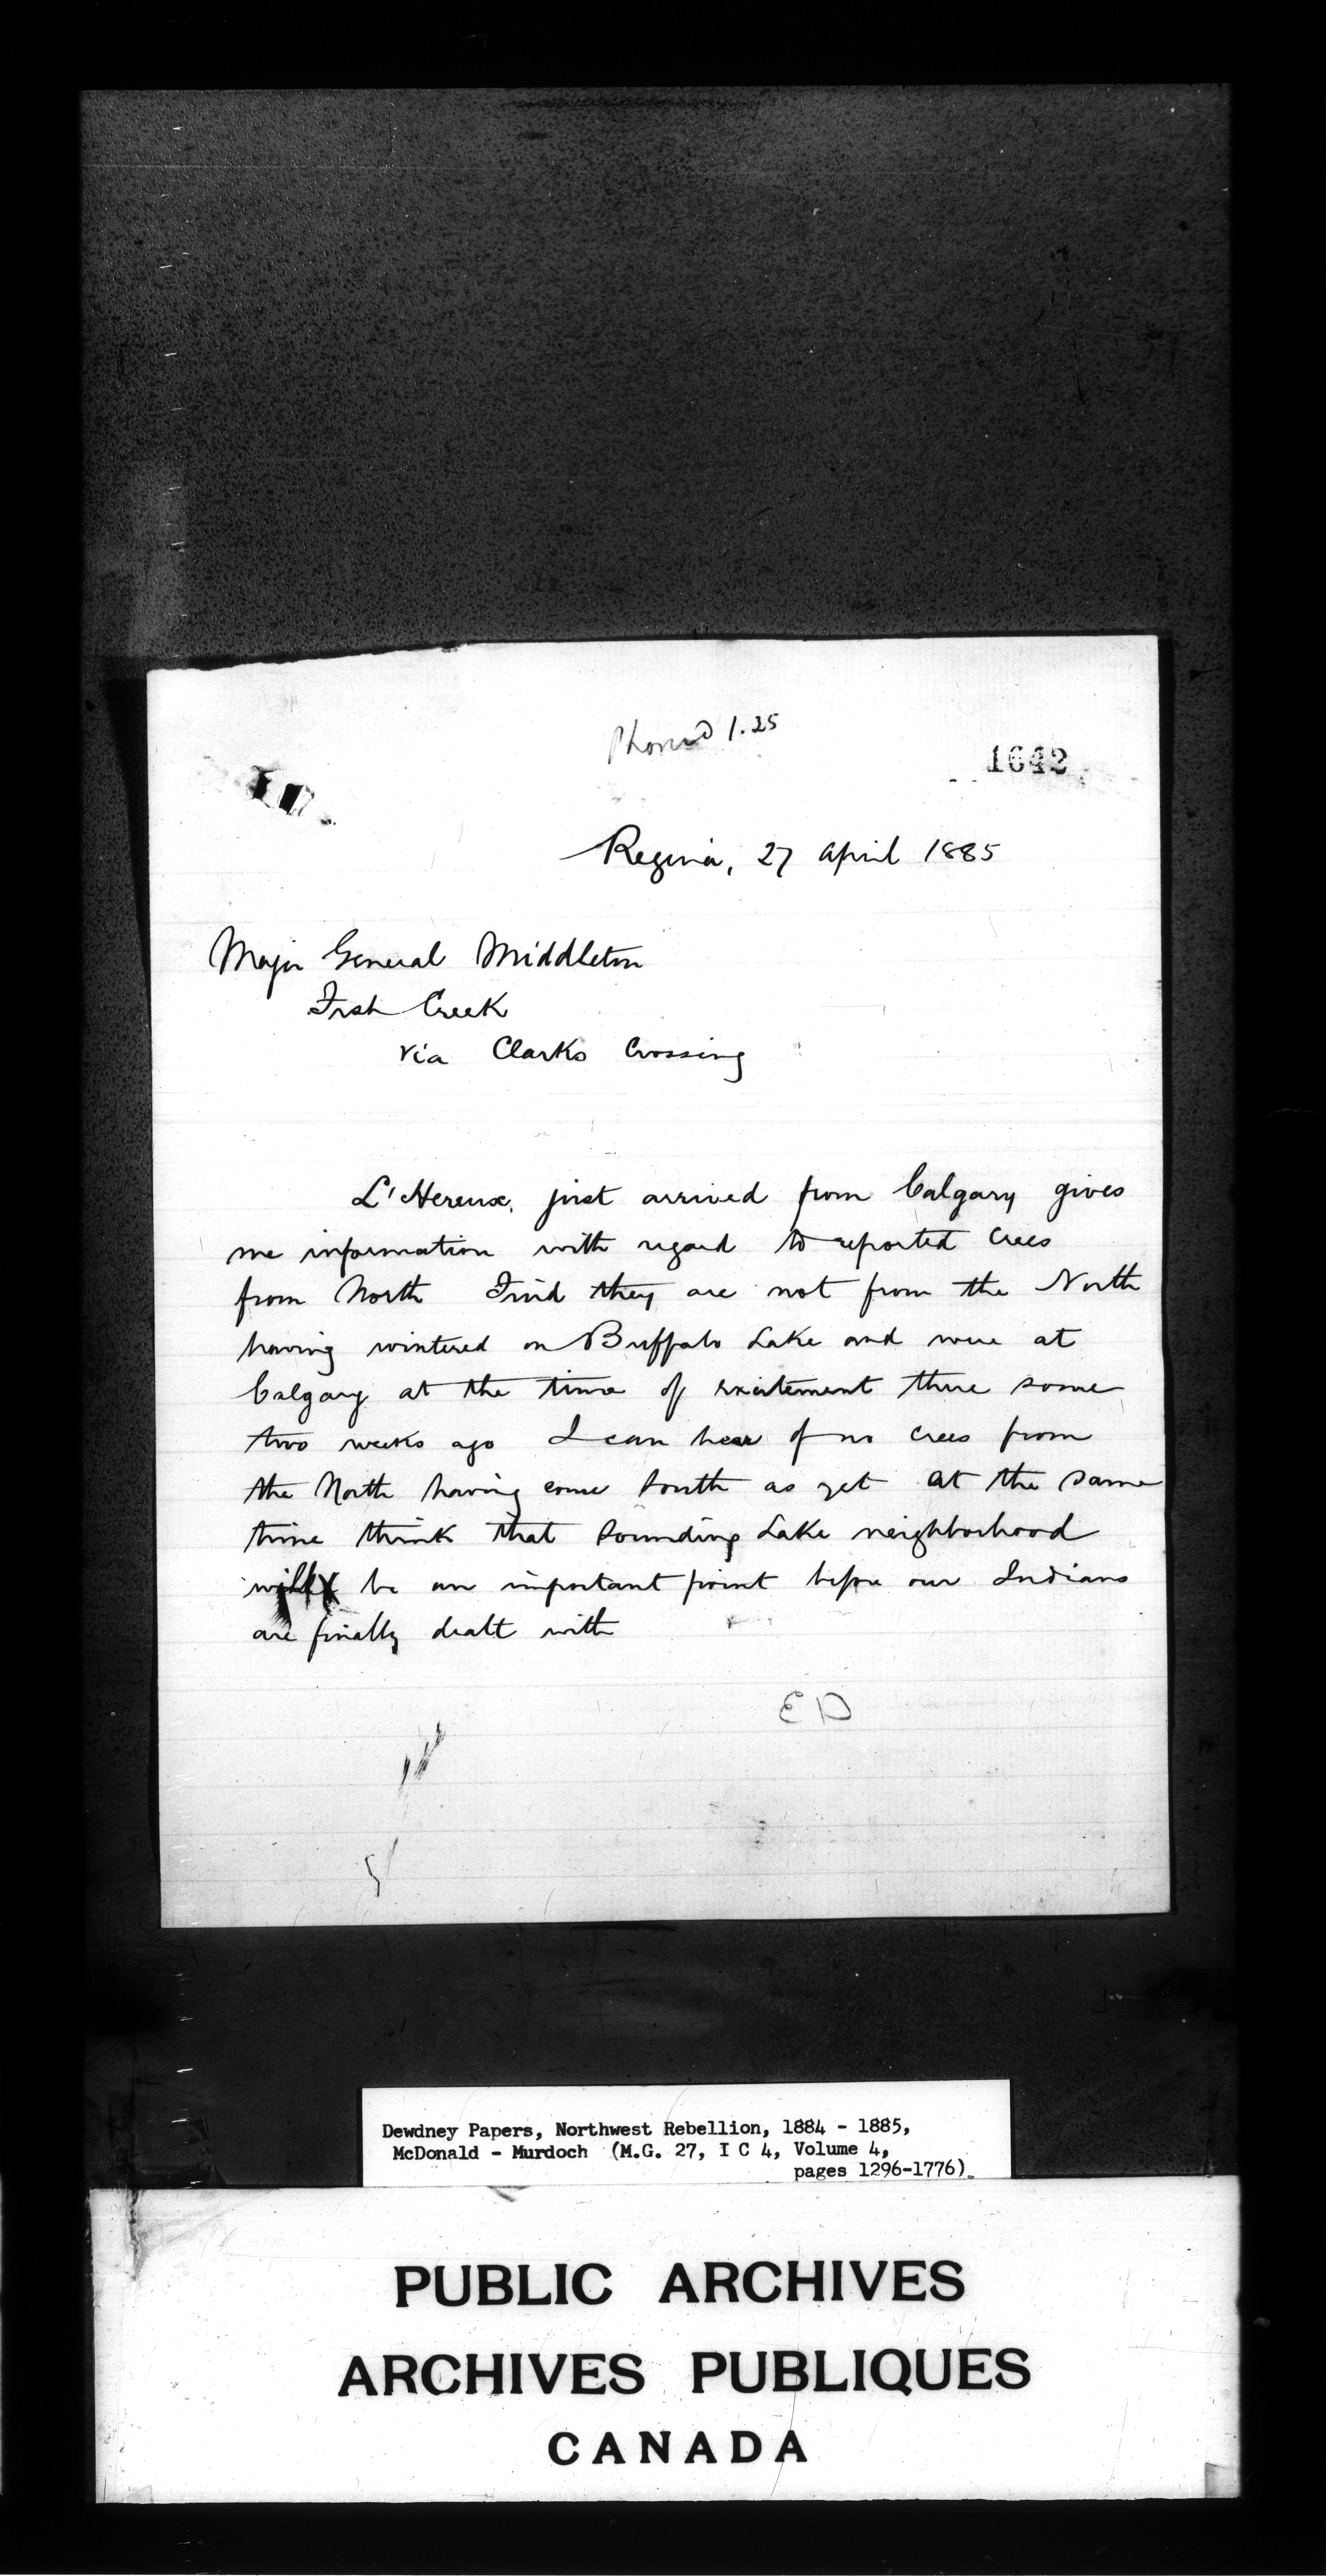 Phoned 1.25
1642
Regina, 27 April 1885
Major General Middleton
Fish Creek
via Clarks Crossing
L'Hereux, just arrived from Calgary gives
me information with regard to reported Crees
from North Find they are not from the North
having wintered on Buffalo Lake and were at
Calgary at the time of excitement there some
two weeks ago I can hear of no Crees from
the North having come South as yet at the same
time think that Sounding Lake neighborhood
will be an important point before our Indians
are finally dealt with
ED
Dewdney Papers, Northwest Rebellion, 1884 - 1885,
McDonald - Murdoch (M.G. 27, I C 4, Volume 4,
pages 1296-1776)
PUBLIC ARCHIVES
ARCHIVES PUBLIQUES
CANADA